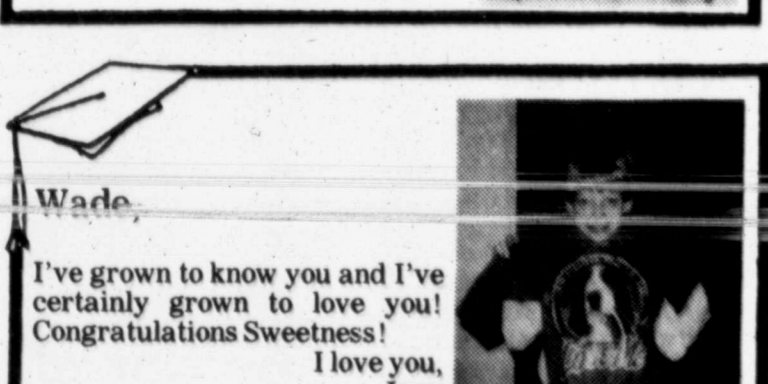 Wade,
I've grown to know you and I've
certainly grown to love you!
Congratulations Sweetness!
I love you,